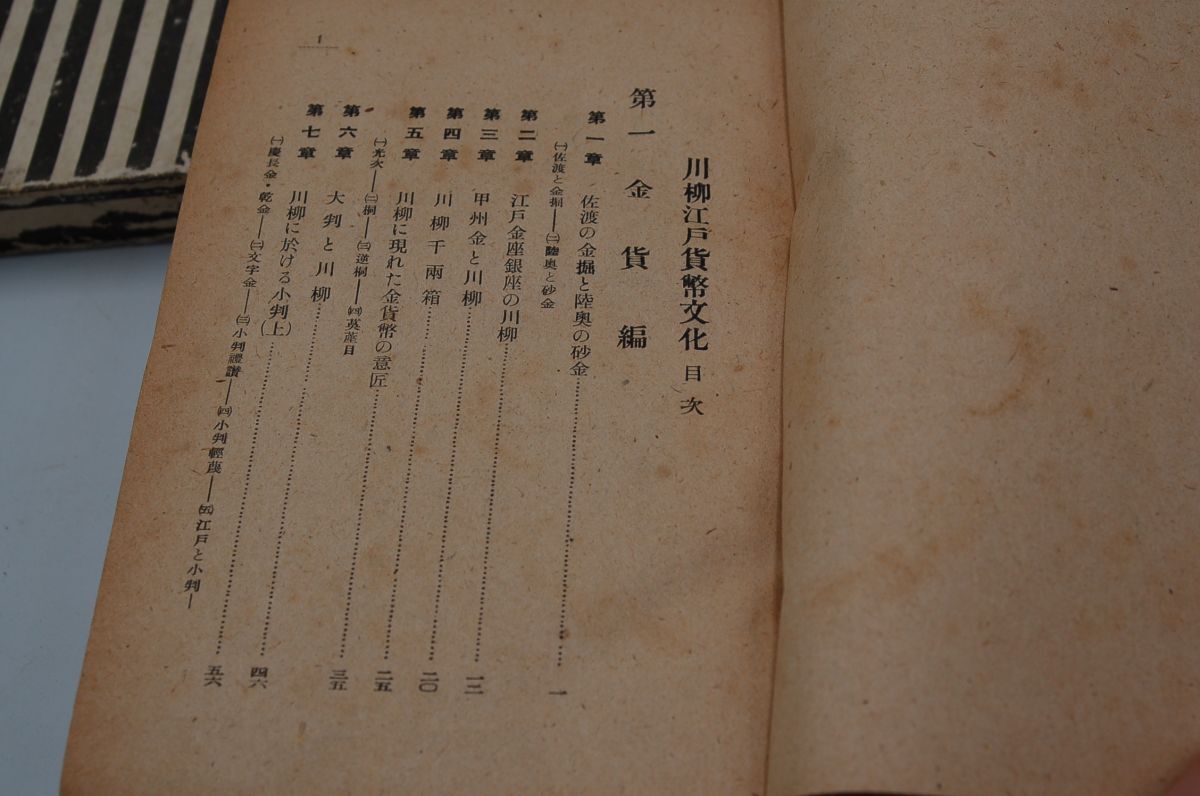 川柳江戸貨幣文化 目次
第一 金貨編
第一章 佐渡の金掘と陸奥の砂金……一
㈠佐渡と金掘―㈡陸奥と砂金
第二章 江戸金座銀座の川柳……一二
第三章 甲州金と川柳……二〇
第四章 川柳千兩箱……二五
第五章 川柳に現れた金貨幣の意匠……三五
㈠光次―㈡桐―㈢逆桐―㈣茣蓙目
第六章 大判と川柳……四六
第七章 川柳に於ける小判(上)……五六
㈠慶長金・乾金―㈡文字金―㈢小判禮讃―㈣小判輕蔑―㈤江戸と小判―
1